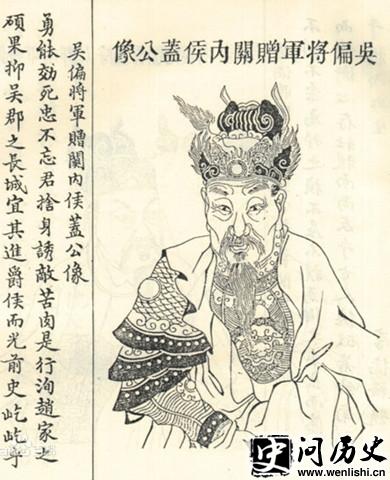 吳偏將軍贈關內侯蓋公像
吳偏將軍贈關內侯蓋公像
勇能効死忠不忘君捨身誘敵苦肉是行洵趙家之
碩果抑吳郡之長城宜其進爵侯而光前史屹屹乎
史 问历史
www.wenlishi.cn